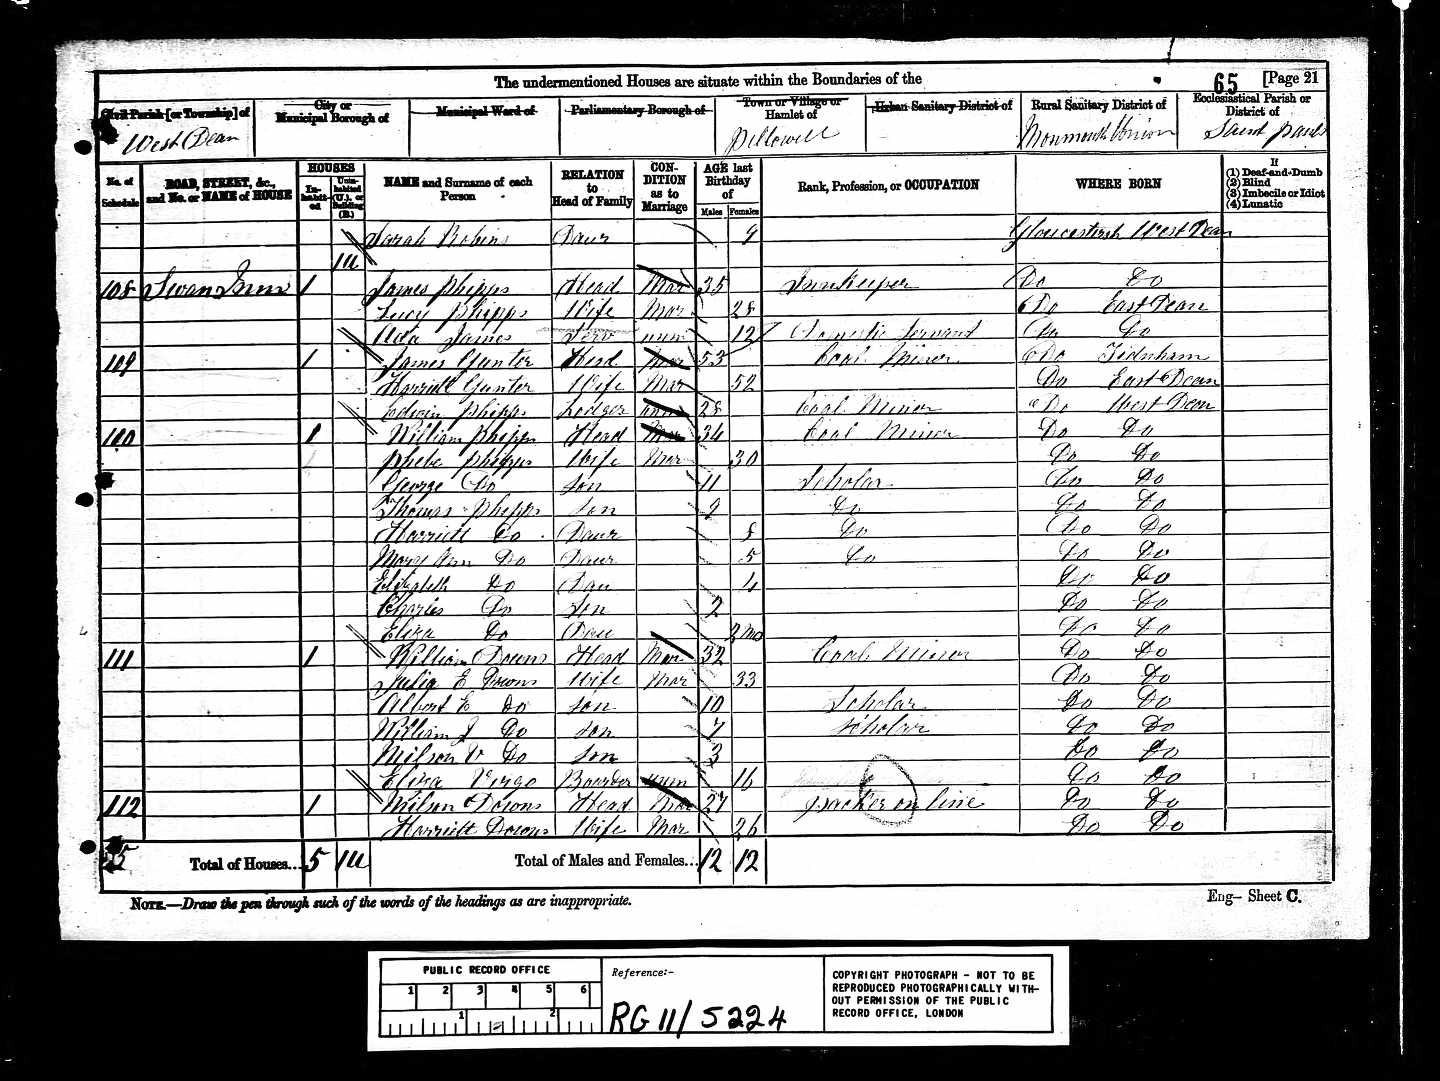 The undermentioned Houses are situate within the Boundaries of the
65 [Page 21
Civil Parish [or Township] of
City or Municipal Borough of
Municipal Ward of
Parliamentary Borough of
Town or Village or Hamlet of
Urban Sanitary District of
Rural Sanitary District of
Ecclesiastical Parish or District of
West Dean
Pillowell
Monmouth Union
Saint Pauls
No. of Schedule
ROAD, STREET, &c., and No. or NAME of HOUSE
HOUSES
Inhabited
Uninhabited (U.), or Building (B.)
NAME and Surname of each Person
RELATION to Head of Family
CONDITION as to Marriage
AGE last Birthday of
Males Females
Rank, Profession, or OCCUPATION
WHERE BORN
If
(1) Deaf-and-Dumb
(2) Blind
(3) Imbecile or Idiot
(4) Lunatic
Sarah Robins Daur 9 Gloucestersh West Dean
1U
108 Swan Inn 1 James Phipps Head Mar 35 Innkeeper Do Do
Lucy Phipps Wife Mar 28 Do East Dean
Ada James Serv unm 12 Domestic Servant Do Do
109 1 James Gunter Head Mar 53 Coal Miner Do Tidnham
Harriett Gunter Wife Mar 52 Do East Dean
Edwin Phipps Lodger unm 28 Coal Minor Do West Dean
110 1 William Phipps Head Mar 34 Coal Minor Do Do
Phebe Phipps Wife Mar 30 Do Do
George Do Son 11 Scholar Do Do
Thomas Phipps Son 9 Do Do Do
Harriett Do Daur 8 Do Do Do
Mary Ann Do Daur 5 Do Do Do
Elizabeth Do Dau 4 Do Do
Charles Do Son 2 Do Do
Eliza Do Dau 2 mo Do Do
111 1 William Downs Head Mar 32 Coal Minor Do Do
Julia E Downs Wife Mar 33 Do Do
Albert E Do Son 10 Scholar Do Do
William J Do Son 7 Scholar Do Do
Milson V Do Son 3 Do Do
Eliza Virgo Boarder unm 16 Do Do
112 1 Wilson Downs Head Mar 27 packer on line Do Do
Harriett Downs Wife Mar 26 Do Do
Total of Houses... 5 1U
Total of Males and Females... 12 12
NOTE.—Draw the pen through such of the words of the headings as are inappropriate.
Eng— Sheet C.
PUBLIC RECORD OFFICE
1 2 3 4 5 6
1 2
Reference:-
RG 11/5224
COPYRIGHT PHOTOGRAPH - NOT TO BE
REPRODUCED PHOTOGRAPHICALLY WITH-
OUT PERMISSION OF THE PUBLIC
RECORD OFFICE, LONDON